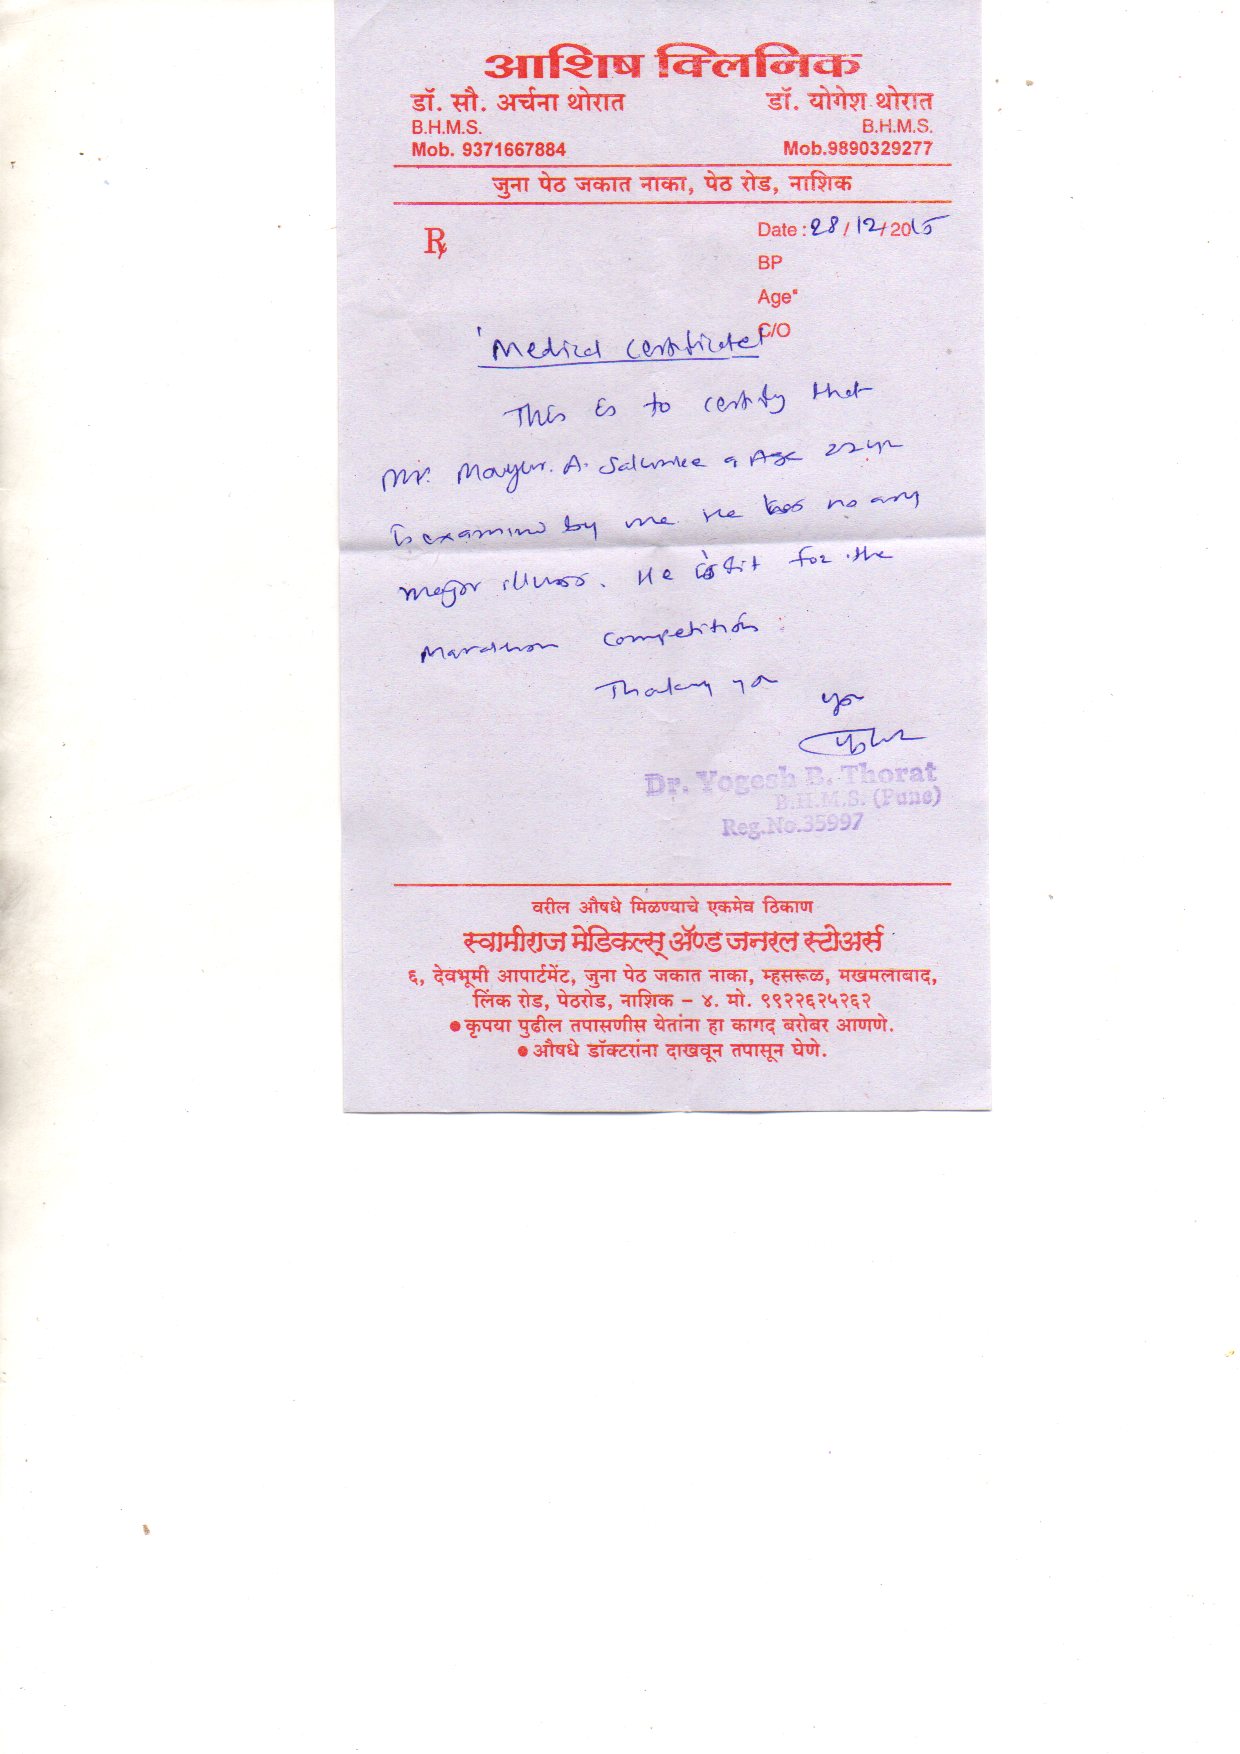 आशिष क्लिनिक
डॉ. सौ. अर्चना थोरात डॉ. योगेश थोरात
B.H.M.S. B.H.M.S.
Mob. 9371667884 Mob.9890329277
जुना पेठ जकात नाका, पेठ रोड, नाशिक
Rx Date : 28/12/2015
BP
Age
C/O
'Medical certificate'
This is to certify that
Mr. Mayur. A. Salunke Age 22 yr
is examine by me. He has no any
major illness. He is fit for the
Marathon competition.
Thanking you
Dr. Yogesh B. Thorat
B.H.M.S. (Pune)
Reg.No.35997
वरील औषधे मिळण्याचे एकमेव ठिकाण
स्वामीराज मेडिकल्स् ॲण्ड जनरल स्टोअर्स
६, देवभूमी आपार्टमेंट, जुना पेठ जकात नाका, म्हसरूळ, मखमलाबाद,
लिंक रोड, पेठरोड, नाशिक – ४. मो. ९९२२६२५२६२
● कृपया पुढील तपासणीस येतांना हा कागद बरोबर आणणे.
● औषधे डॉक्टरांना दाखवून तपासून घेणे.